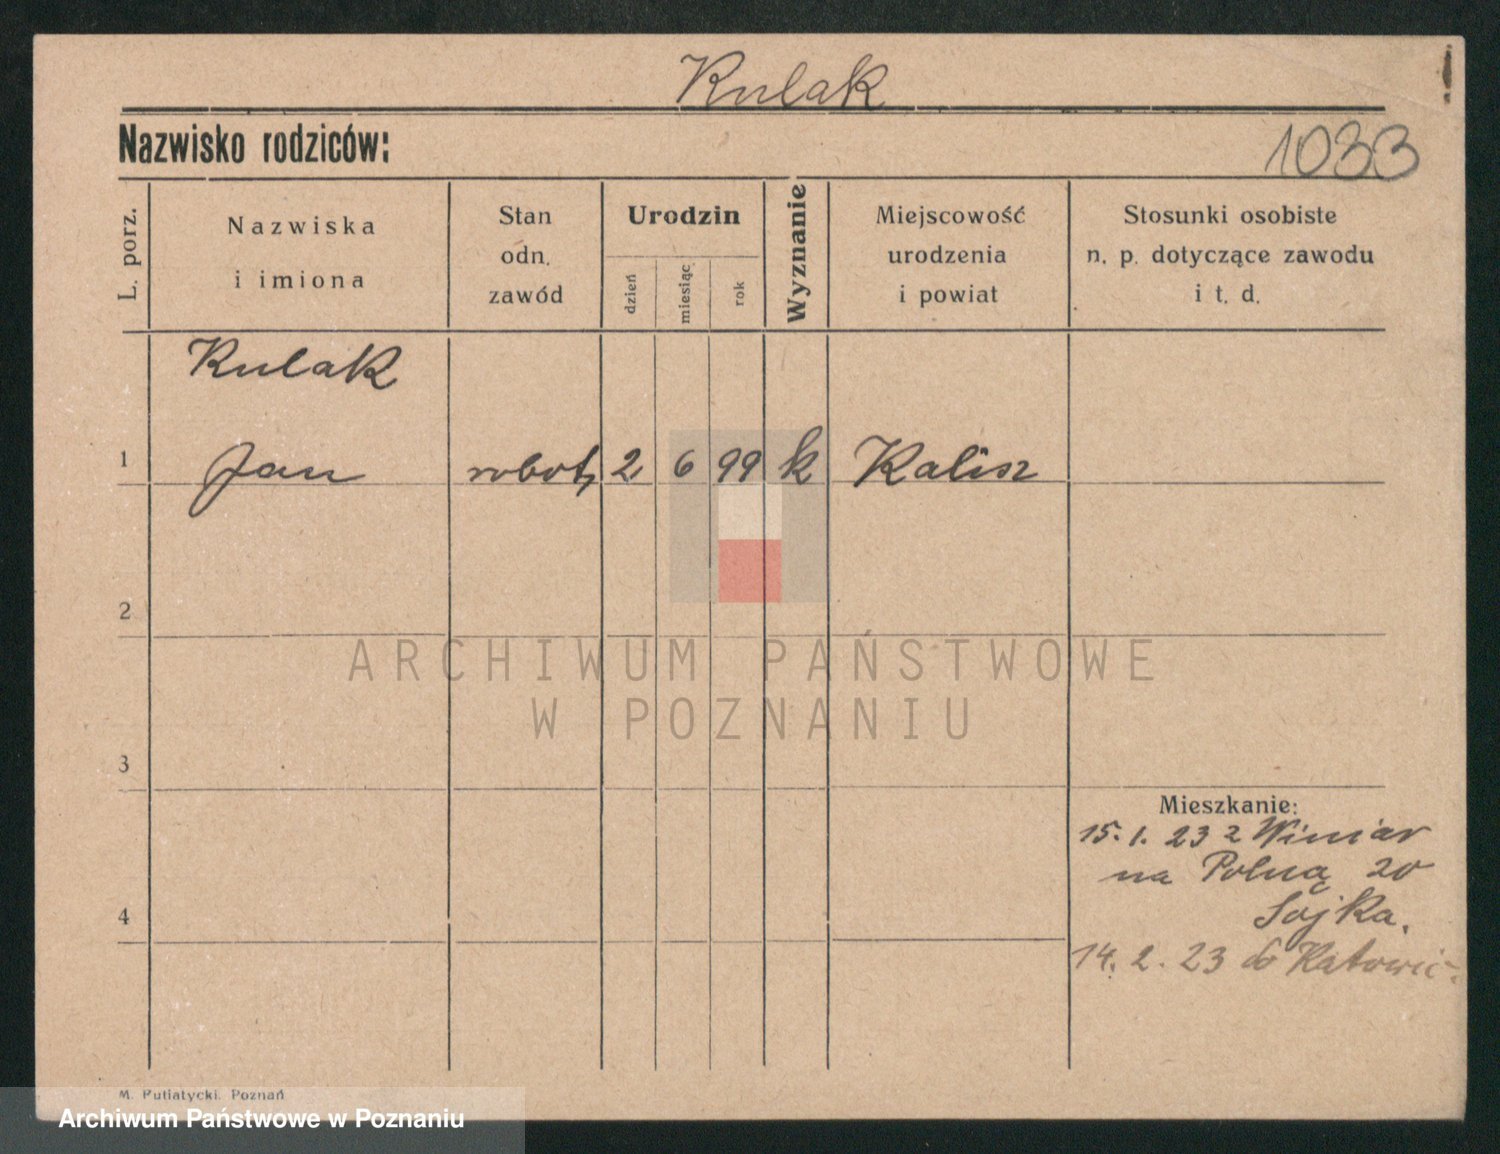 Kulak
Nazwisko rodziców:
1033
L. porz.
Nazwiska
i imiona
Stan
odn.
zawód
Urodzin
dzień
miesiąc
rok
Wyznanie
Miejscowość
urodzenia
i powiat
Stosunki osobiste
n. p. dotyczące zawodu
i t. d.
Kulak
1 Jan robotn 2 6 99 k Kalisz
2
ARCHIWUM PAŃSTWOWE
W POZNANIU
3
Mieszkanie:
15. 1. 23 z Winiar
na Polną 20
Sojka.
4
14. 2. 23 do Katowic
M. Putiatycki. Poznań
Archiwum Państwowe w Poznaniu